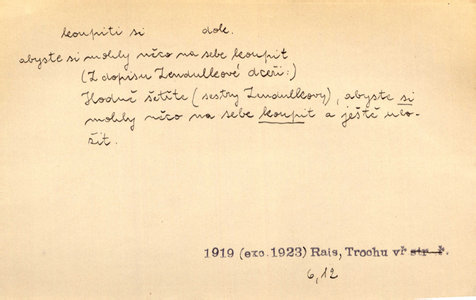 koupiti si dok.
abyste si mohly něco na sebe koupit
(Z dopisu Zendulkové dceři:)
Hodně šetíte (sestry Zendulkovy), abyste si
mohly něco na sebe koupit a ještě ulo-
žit.
1919 (exc. 1923) Rais, Trochu vř str. ř.
6,12